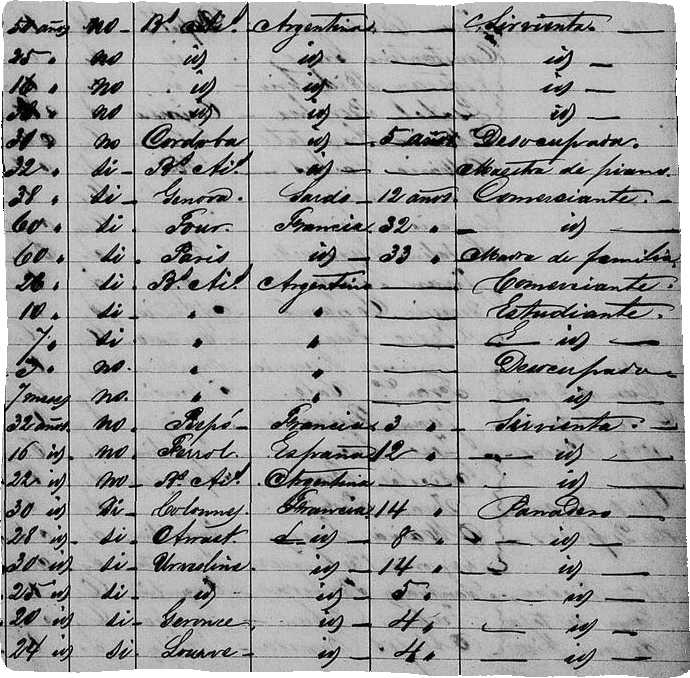 50 años no Bs Ais Argentina — Sirvienta.
25 " no id id — id —
16 " no id id — id —
no id id — id —
30 " no Cordoba id — 5 años Desocupada.
32 " si Bs Ais id — — Maestra de piano
38 " si Genova. Sardo 12 años. Comerciante. —
60 " si Tour. Francia 32 " — id —
60 " si Paris id — 33 " Madre de familia
26 " si. Bs Ais Argentina — Comerciante.
10 " si " " — Estudiante.
7 " si " " — id —
no. " " — Desocupado
7 meses no. " " — — id —
32 años no. Francia 3 " Sirvienta. —
16 id no. Ferrol. España 12 " — id —
22 id no Bs Ais Argentina — — id —
30 id Si Francia 14 " Panadero
28 id si. id — 8 " — id —
30 id si id — 14 " — id —
25 id si. id id — 5 " — id —
20 id si id — 4 " — id —
24 id si id — 4 " — id —